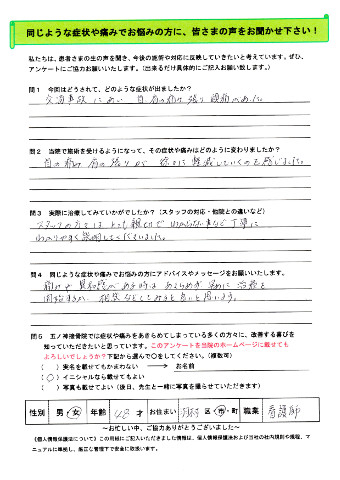 同じような症状や痛みでお悩みの方に、皆さまの声をお聞かせ下さい！
私たちは、患者さまの生の声を聞き、今後の施術や対応に反映していきたいと考えています。ぜひ、
アンケートにご協力お願いいたします。（出来るだけ具体的にご記入お願い致します。）
問1　今回はどうされて、どのような症状が出ましたか？
交通事故にあい 首 肩の痛み 張り 頭痛があった。
問2　当院で施術を受けるようになって、その症状や痛みはどのように変わりましたか？
首の痛み 肩の張りが 徐々に軽減していくのを感じました。
問3　実際に治療してみていかがでしたか？（スタッフの対応・他院との違いなど）
スタッフの方々は とても親切で わからない事など丁寧に
わかりやすく説明してくださいました。
問4　同じような症状や痛みでお悩みの方にアドバイスやメッセージをお願いします。
痛みや違和感がある時は あきらめず 早めに 治療を
開始するか、相談などしてみると良いと思います。
問5　五ノ神接骨院では症状や痛みをあきらめてしまっている多くの方々に、改善する喜びを
知っていただきたいと思っています。このアンケートを当院のホームページに載せても
よろしいでしょうか？下記から選んで○をしてください。（複数可）
（　）実名を載せてもかまわない　→　お名前
（○）イニシャルなら載せてもよい
（　）写真も載せてよい（後日、先生と一緒に写真を撮らせていただきます）
性別　男・女　年齢　才　お住まい　区・市・町　職業　看護師
～お忙しい中、ご協力ありがとうございました～
《個人情報保護法について》この用紙にご記入いただきました情報は、個人情報保護法および当社の社内規則や規程、マ
ニュアルに準拠し、厳正な管理下で安全に取扱います。